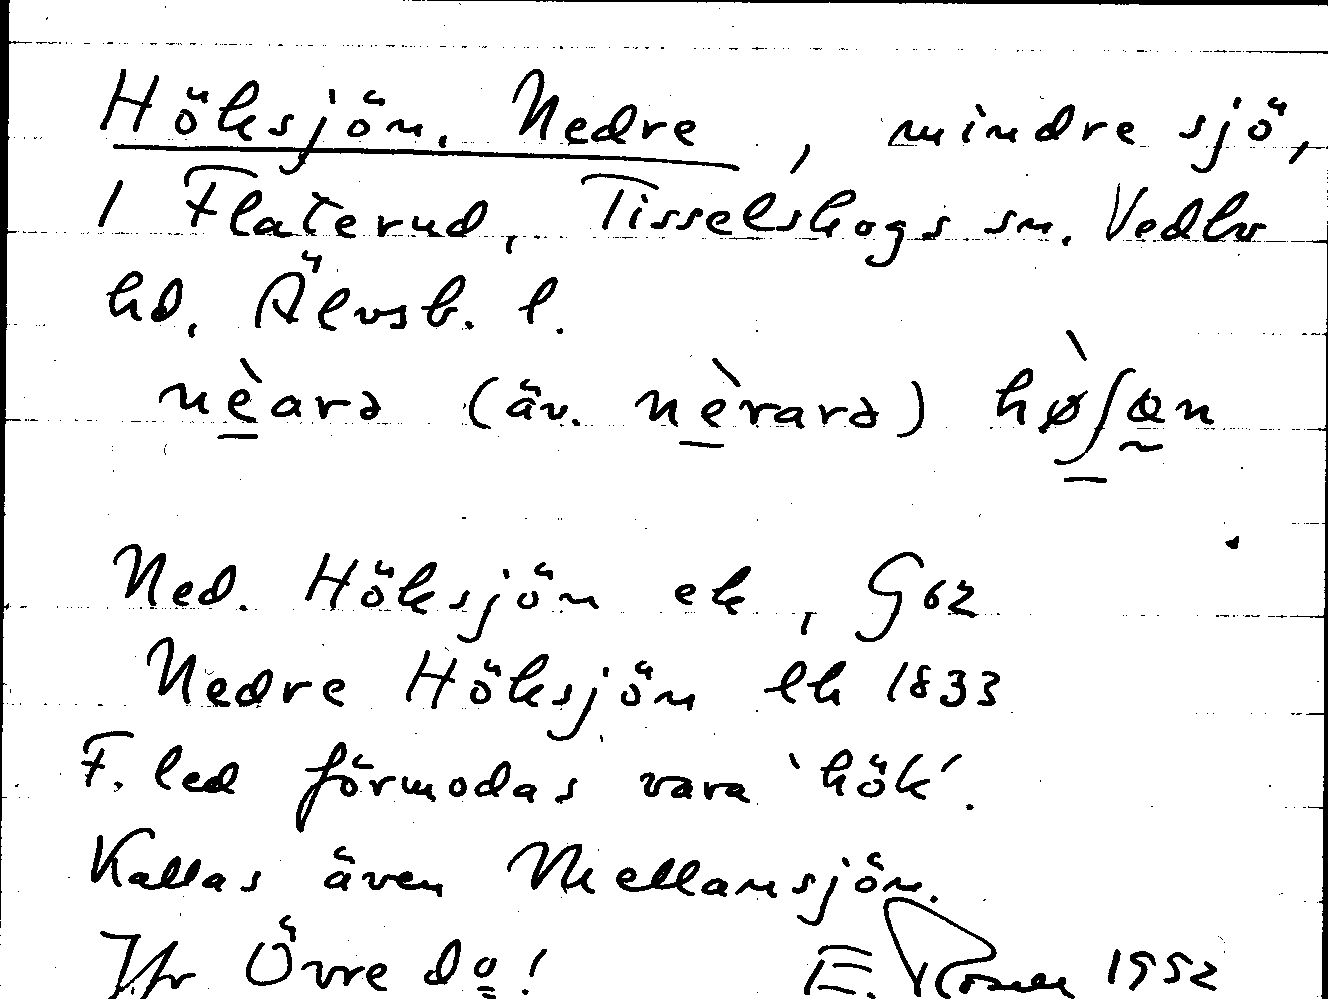 Höksjön, Nedre, mindre sjö,
I Flaterud, Tisselskogs sn. Vedbo
hd, Älvsb. l.
nèarə (äv. nèrarə) hø̀ʃøn
Ned. Höksjön ek, G62
Nedre Höksjön lh 1833
F. led förmodas vara 'hök'.
Kallas även Mellansjön.
Jfr Övre do!
E. Rosell 1952